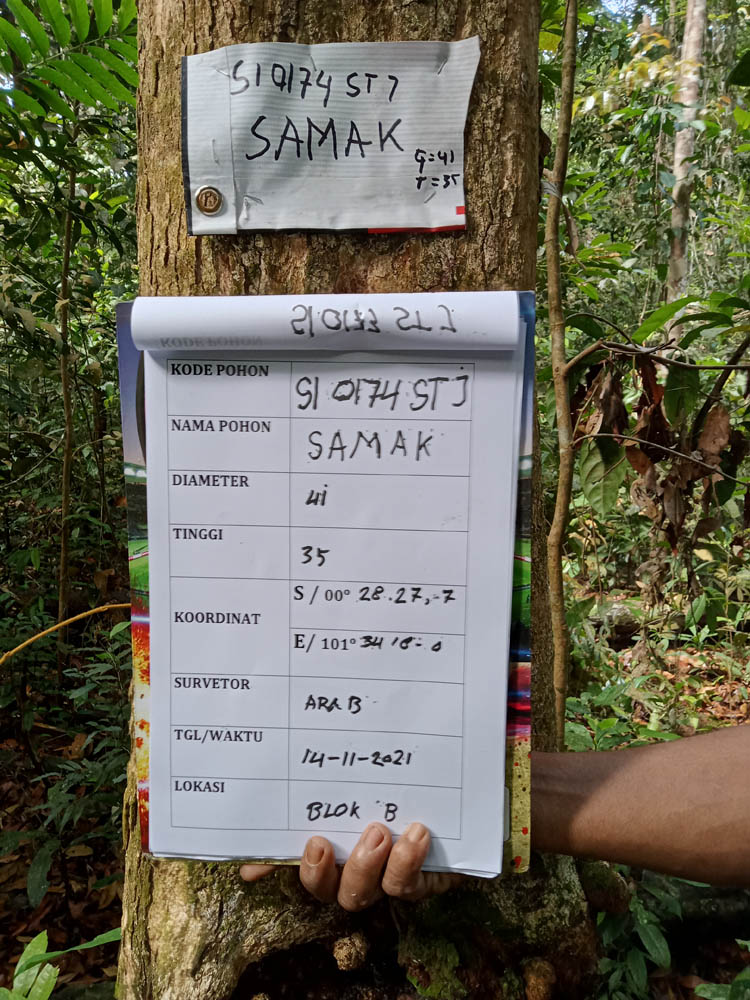 SI 0174 STJ
SAMAK
G=41
T=35
KODE POHON SI 0174 STJ
NAMA POHON SAMAK
DIAMETER 41
TINGGI 35
KOORDINAT
S / 00° 28.27,-7
E/ 101° 34
SURVETOR ARA B
TGL/WAKTU 14-11-2021
LOKASI BLOK B